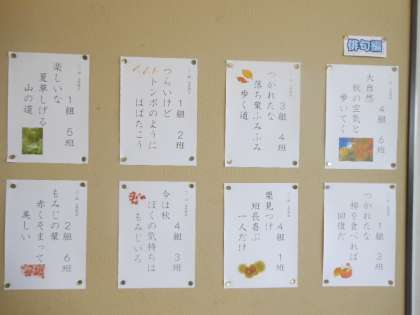 俳句集
4組 6班
大自然
秋の空気と
歩いてく
3組 4班
つかれたな
落ち葉ふみふみ
歩く道
1組 2班
つらいけど
トンボのように
はばたこう
1組 5班
楽しいな
夏草しげる
山の道
1組 3班
つかれたな
柿を食べれば
回復だ
4組 1班
栗見つけ
班長喜ぶ
一人だけ
4組 3班
今は秋
ぼくの気持ちは
もみじいろ
2組 6班
もみじの葉
赤くそまって
美しい